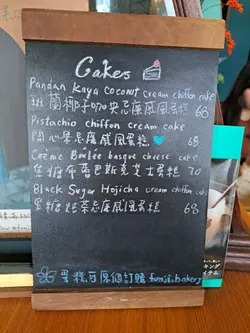 Cakes
Pandan Kaya Coconut cream chiffon cake
班蘭椰子咖央忌廉戚風蛋糕 68
Pistachio chiffon cream cake
開心果忌廉戚風蛋糕 68
Crème Brûlée basque cheese cake
焦糖布蕾巴斯克芝士蛋糕 70
Black Sugar Hojicha cream chiffon cake
黑糖焙茶忌廉戚風蛋糕 68
蛋糕可原個訂購